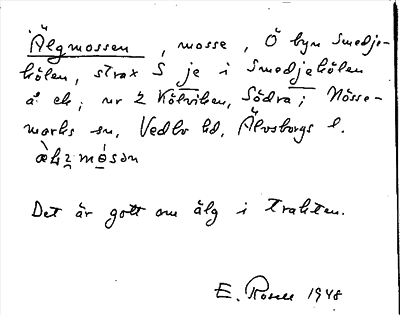 Älgmossen, mosse, Ö byn Smedje-
kölen, strax S je i Smedjekölen
å ek; nr 2 Kölviken, Södra; Nösse-
marks sn, Vedbo hd, Älvsborgs l.
Det är gott om älg i trakten.
E. Rosell 1948